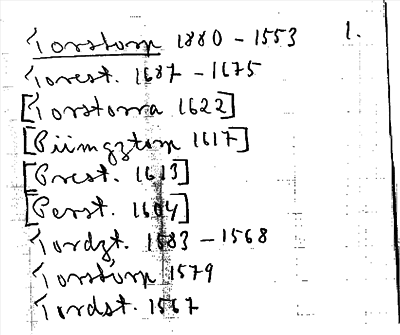 Torstorp 1880 - 1553 1.
Torest. 1687 - 1675
[Torstorra 1622]
[Piimgztorp 1617]
[Prest. 1613]
[Perst. 1604]
Tordzt. 1583 - 1568
Torstörp 1579
Tordst. 1567